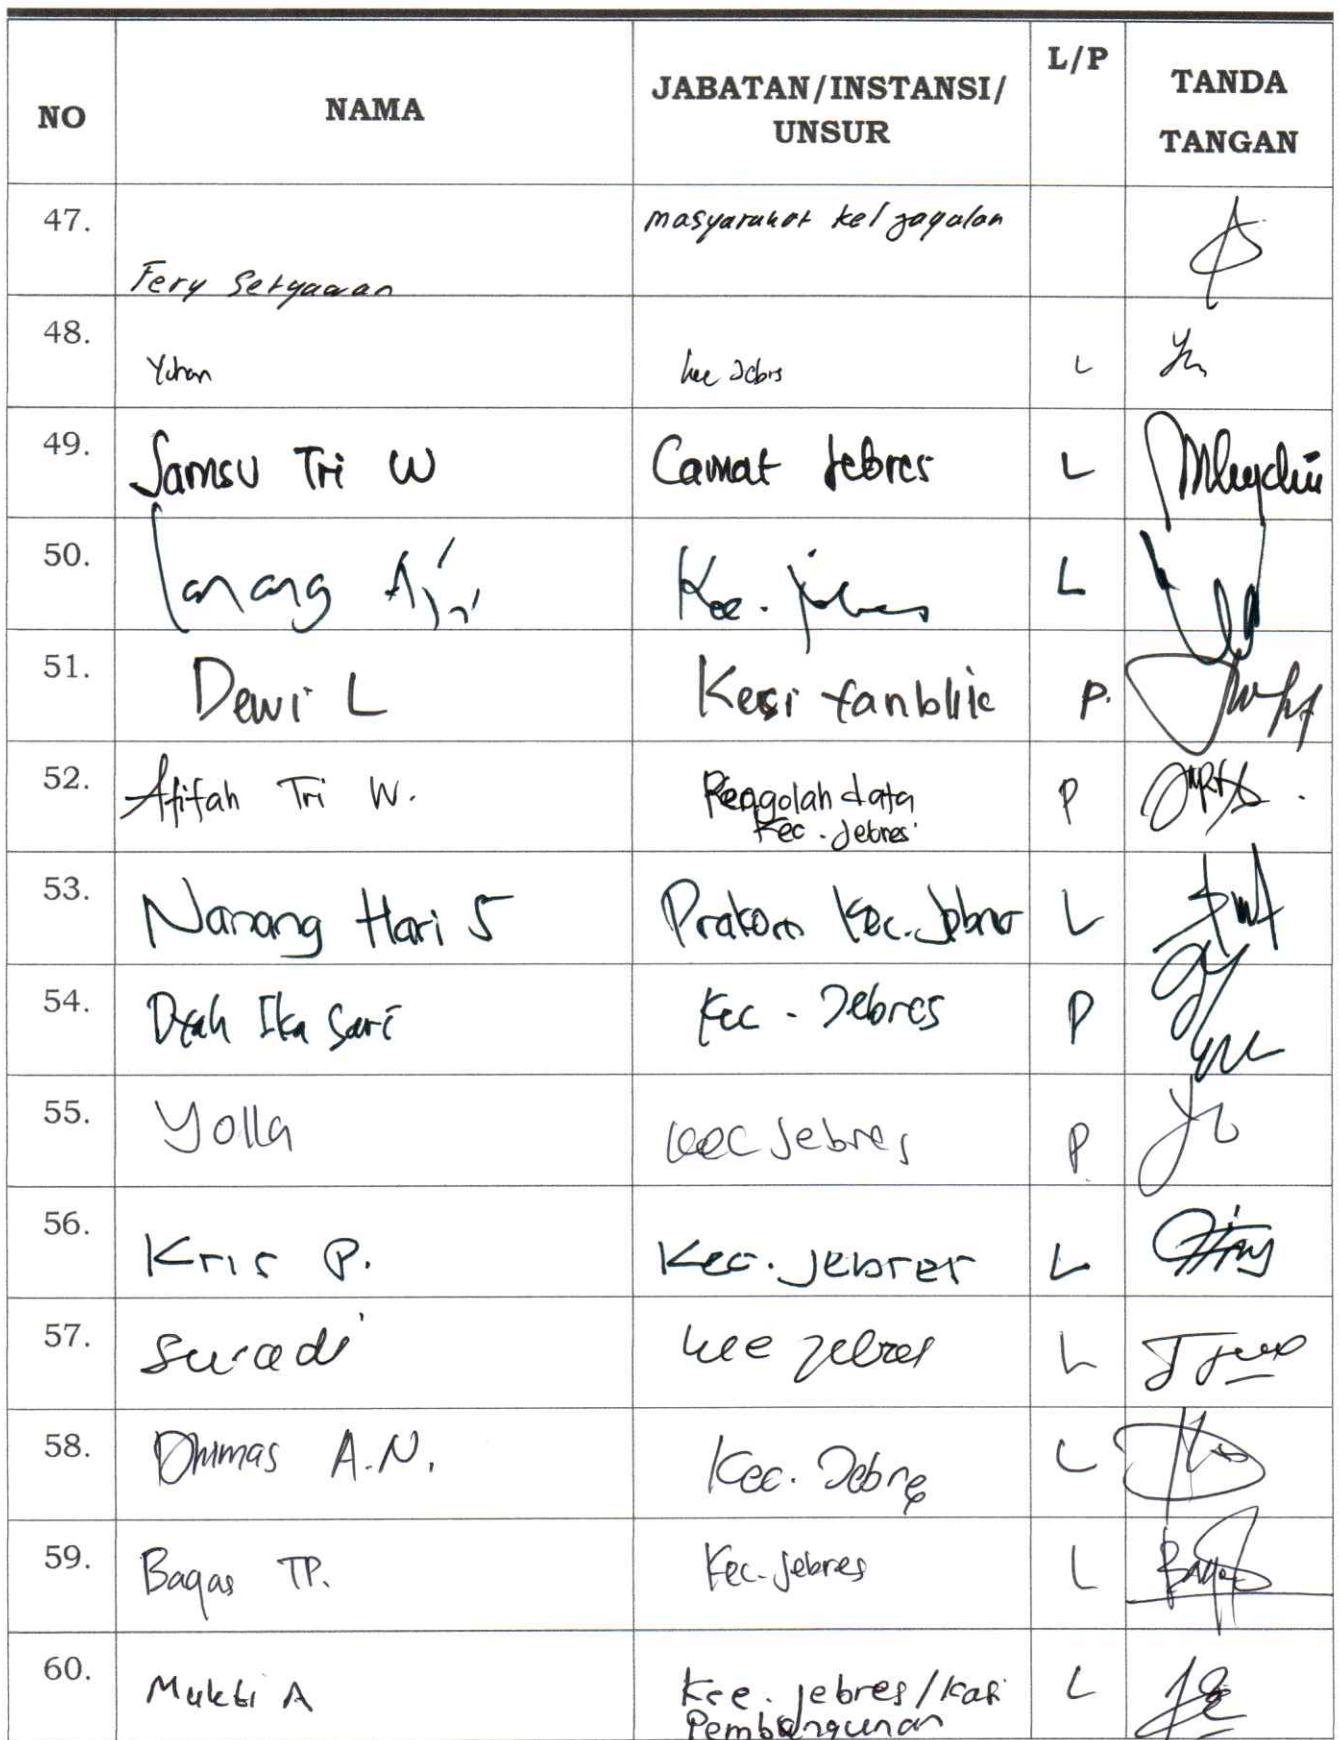 NO NAMA JABATAN/INSTANSI/ UNSUR L/P TANDA TANGAN
47. Fery Setyawan masyarakat kel jagalan
48. Yuhan kec Jebres L
49. Samsu Tri W Camat Jebres L
50. Lanang Aji Kec. jebres L
51. Dewi L Kasi P.
52. Afifah Tri W. Pengolah data P
Kec. Jebres
53. Nanang Hari S Prakom Kec. Jebres L
54. Dyah Ika Sari Kec. Jebres P
55. Yolla kec Jebres P
56. Kris P. Kec. Jebres L
57. Suradi kec Jebres L
58. Dhimas A.N. Kec. Jebres L
59. Bagas TP. Kec. Jebres L
60. Mukti A Kec. Jebres/Kasi L
Pembangunan